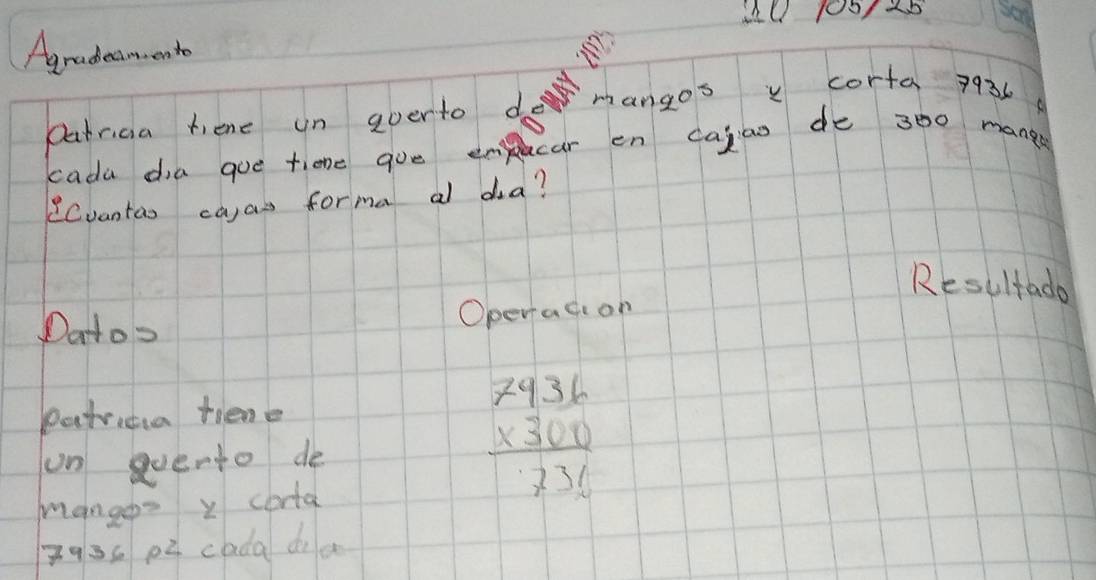 10 /05/25
Agradeamiento
Patricia tiene un querto de mangos y corta 7936
cada dia que tiene que empacar en cajas de 300 mangos
¿Cuantas cajas forma al dia?
Datos
Operacion
Resultado
patricia tiene
un querto de
mangos y corta
7936 pz cada dia
7936
x300
736